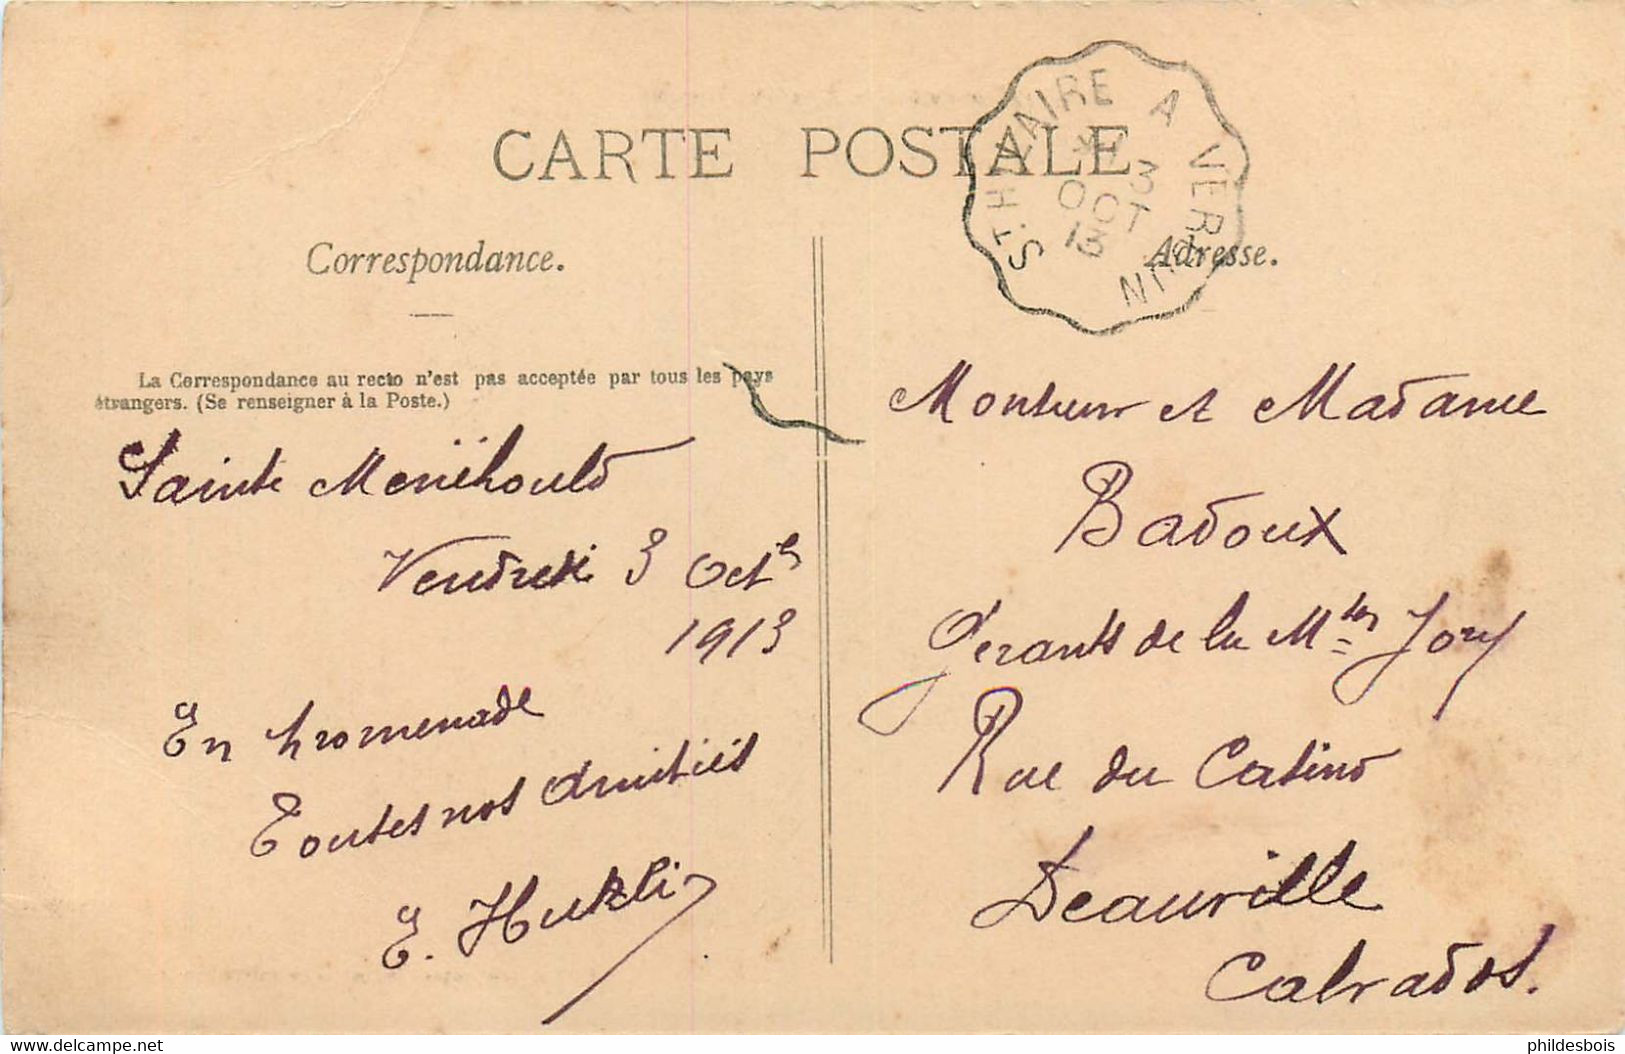 CARTE POSTALE
ST HILAIRE A VERDUN
3
OCT
13
Correspondance.
Adresse.
La Correspondance au recto n'est pas acceptée par tous les pays
étrangers. (Se renseigner à la Poste.)
Sainte Menëhould
Vendredi 3 Oct
1913
En promenade
Toutes nos amitiés
E.
Monsieur et Madame
Badoux
Gérants de la Mon Jory
Rue du Casino
Deauville
Calvados.
delcampe.net
phildesbois